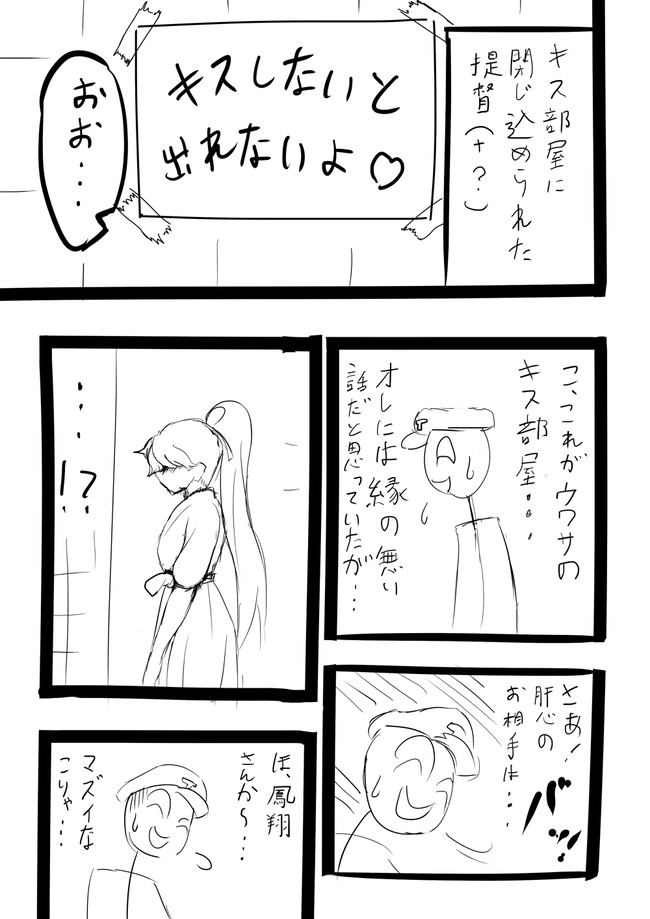 キス部屋に
閉じ込められた
提督(+?)
キスしないと
出れないよ♡
おお・・・
こ、これがウワサの
キス部屋・・・
オレには縁の無い
話だと思っていたが・・・
さあ!
肝心の
お相手は・・・
バッ
・・・!?
ほ、鳳翔
さんか〜・・・
マズイな
こりゃ・・・